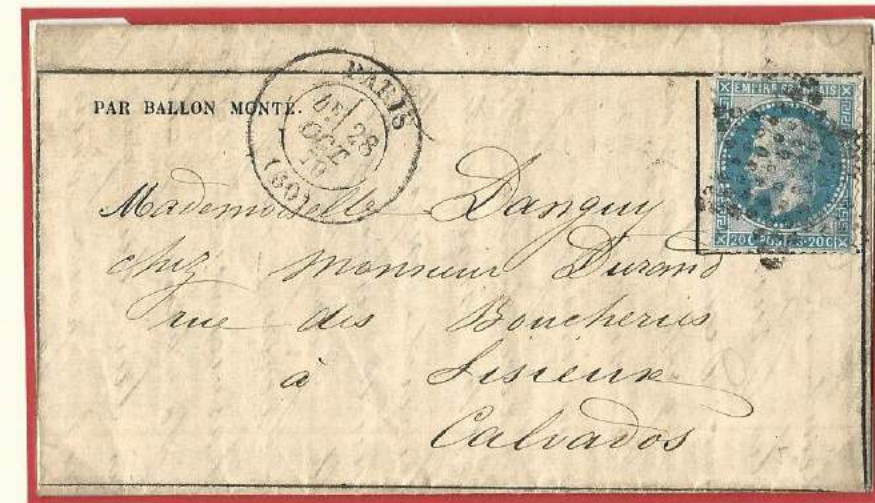 PARIS
28
OCT
70
(60)
PAR BALLON MONTÉ.
EMPIRE FRANÇAIS
20 C POSTES 20 C
Mademoiselle Danguy
chez Monsieur Durand
rue des Boucheries
à Lisieux
Calvados